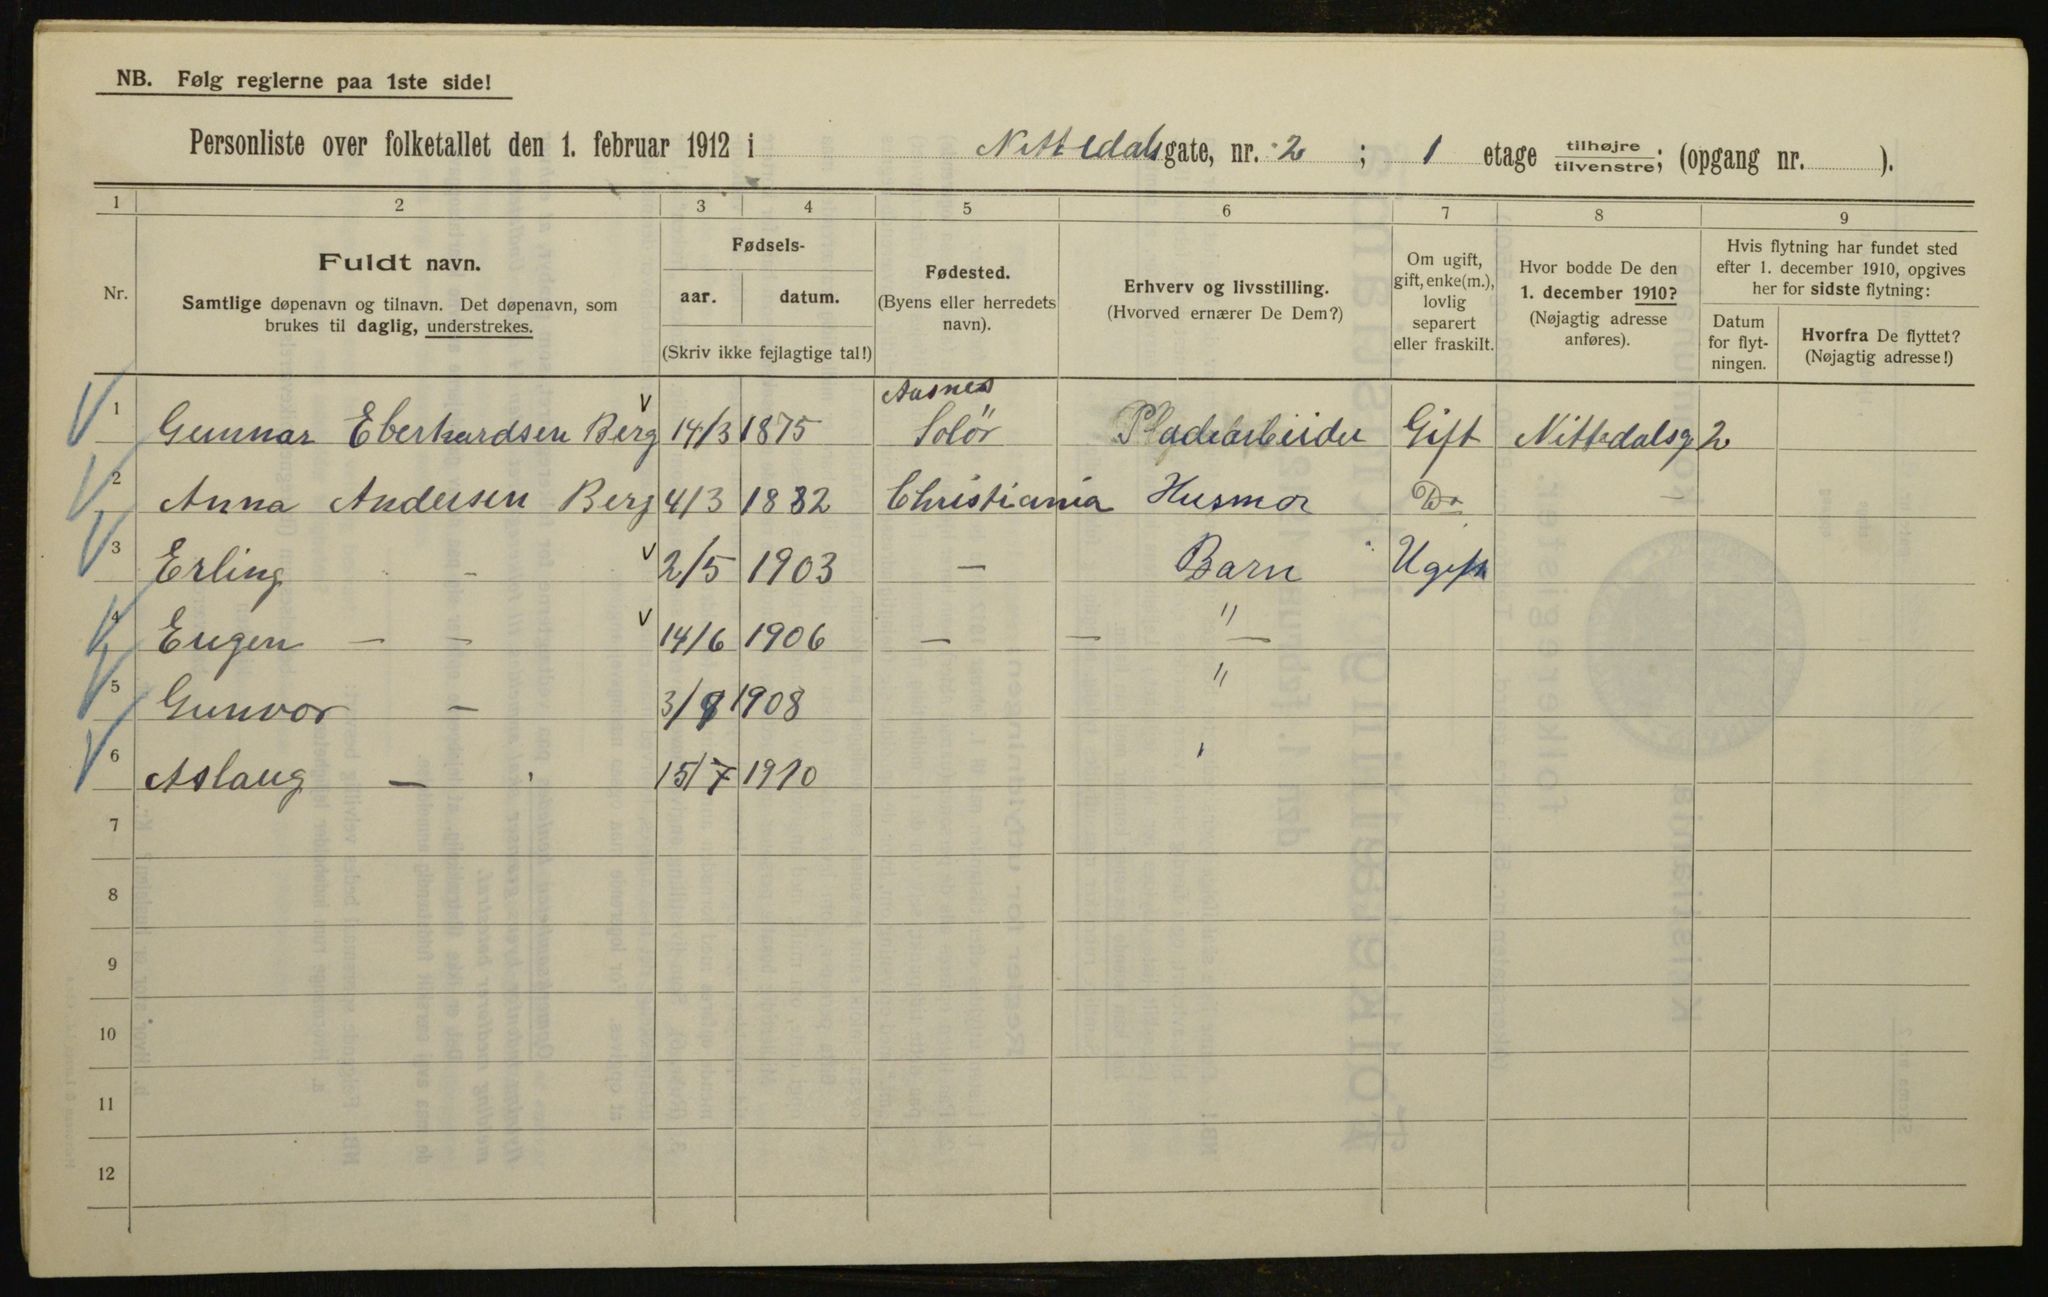 NB. Følg reglerne paa 1ste side!
Personliste over folketallet den 1. februar 1912 i Nittedalsgate, nr. 2 ; 1 etage tilhøjre tilvenstre; (opgang nr. ).
1 2 3 4 5 6 7 8 9
Nr.
Fuldt navn.
Samtlige døpenavn og tilnavn. Det døpenavn, som
brukes til daglig, understrekes.
Fødsels-
aar. datum.
(Skriv ikke fejlagtige tal!)
Fødested.
(Byens eller herredets
navn).
Erhverv og livsstilling.
(Hvorved ernærer De Dem?)
Om ugift,
gift, enke(m.),
lovlig
separert
eller fraskilt.
Hvor bodde De den
1. december 1910?
(Nøjagtig adresse
anføres).
Hvis flytning har fundet sted
efter 1. december 1910, opgives
her for sidste flytning:
Datum
for flyt-
ningen.
Hvorfra De flyttet?
(Nøjagtig adresse!)
Aasnes
1 Gunnar Eberhardsen Berg 14/3 1875 Solör Pladearbeider Gift Nittedalsg 2
2 Anna Andersen Berg 4/3 1882 Christiania Husmor Do
3 Erling - 2/5 1903 - Barn Ugift
4 Eugen - - 14/6 1906 - - " -
5 Gunvor - 3/9 1908 "
6 Aslaug - 15/7 1910 "
7
8
9
10
11
12